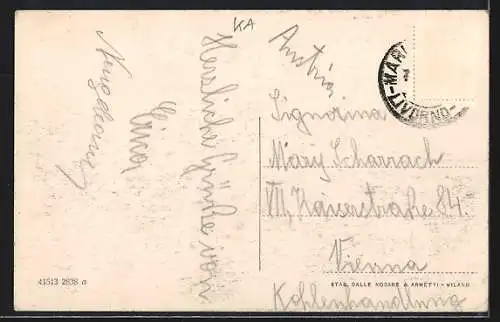 KA
Herzliche Grüße von
Erna
Austria
LIVORNO
Signorina
Mary Scharrach
VII, Kaiserstraße 84.
Vienna
Kohlenhandlung
41513 2838 a
STAB. DALLE NOGARE & ARMETTI - MILANO